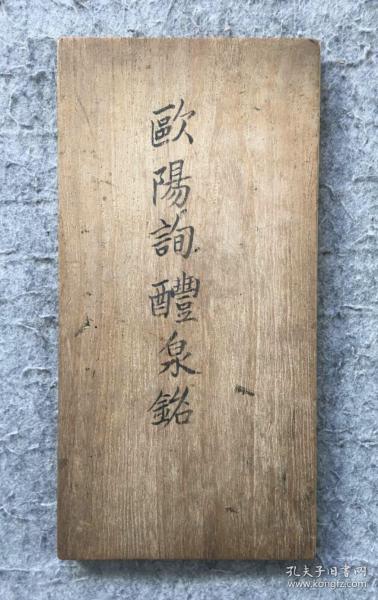 歐陽詢醴泉銘
孔夫子旧书网
www.kongfz.com